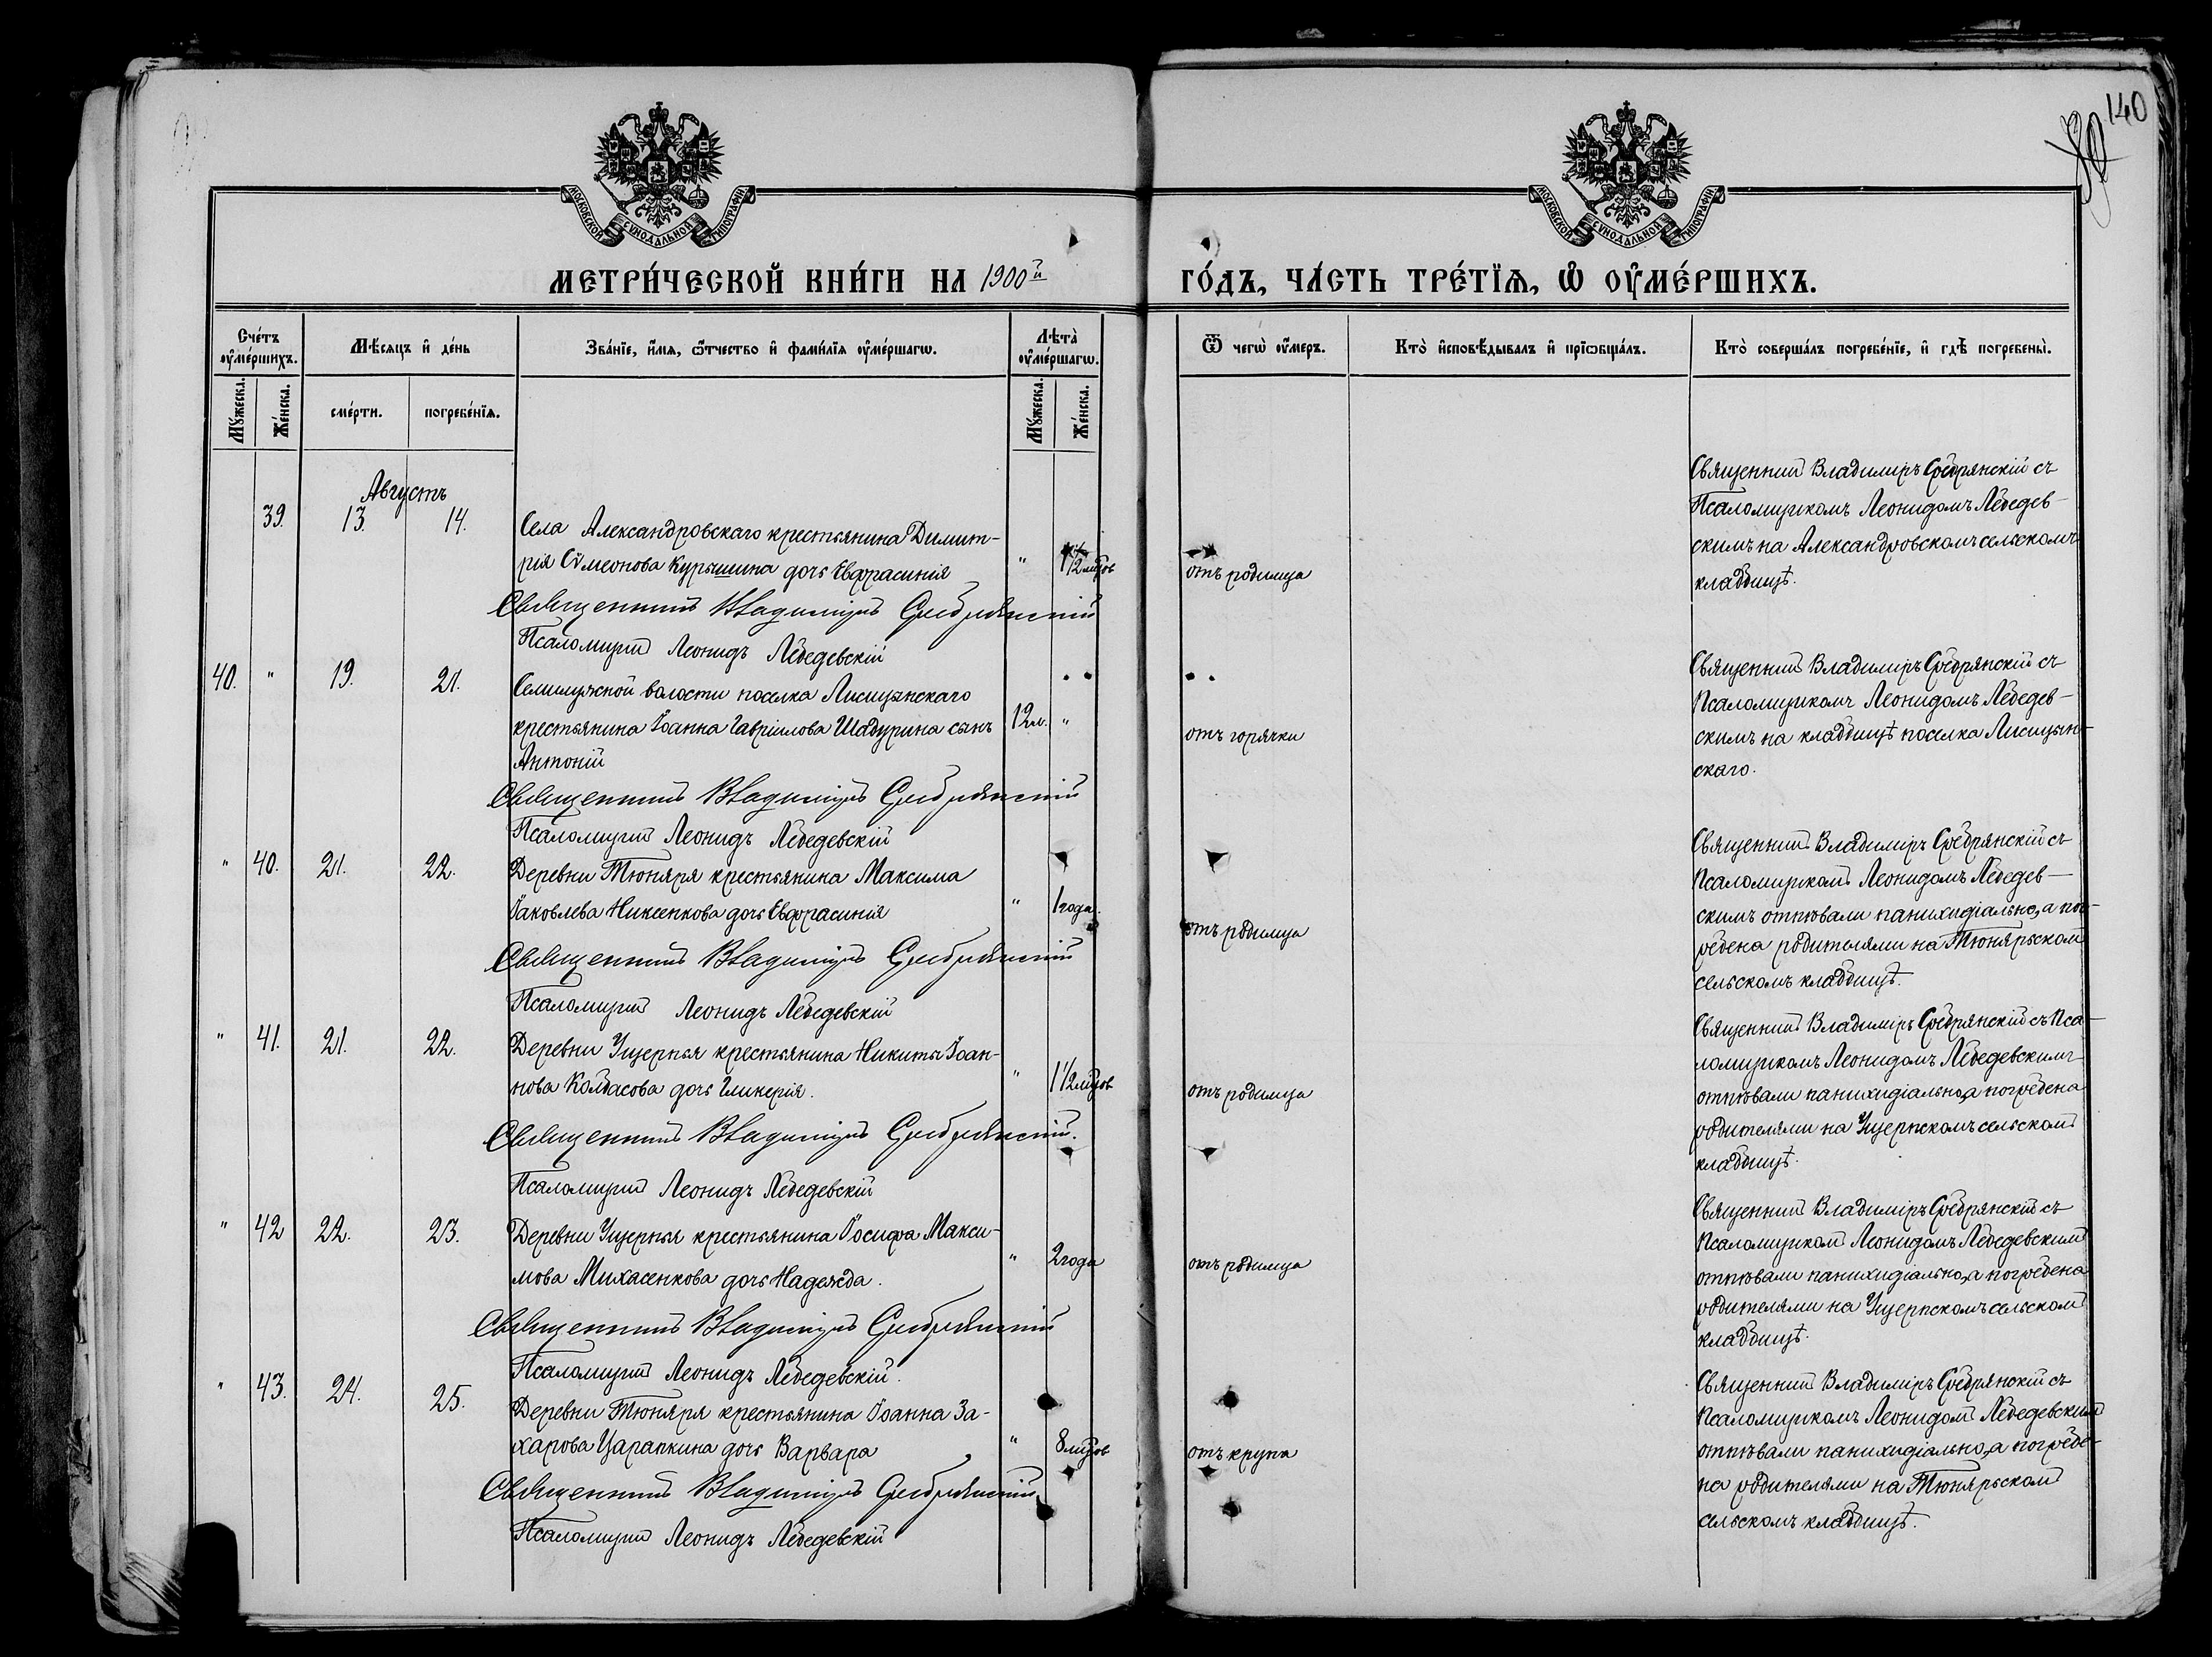 140
МОСКОВСКОЙ СѴНОДАЛЬНОЙ ТИПОГРАФІИ
МОСКОВСКОЙ СѴНОДАЛЬНОЙ ТИПОГРАФІИ
МЕТРИ́ЧЕСКОЙ КНИ́ГИ НА 1900й
ГО́ДЪ, ЧА́СТЬ ТРЕ́ТЇѦ, Ѡ҆ ОУ҆МЕ́РШИХЪ.
Сче́тъ оу҆ме́ршихъ.
Мѣ́сяцъ и҆ де́нь
Зва́нїе, и҆́мя, ѻ҆́тчество и҆ фами́лїя оу҆ме́ршагѡ.
Лѣ́та̀ оу҆ме́ршагѡ.
Ѿ чегѡ̀ оу҆́меръ.
Кто̀ и҆сповѣ́дывалъ и҆ прїѡбща́лъ.
Кто̀ соверша́лъ погребе́нїе, и҆ гдѣ̀ погребены̀.
Мꙋ́жеска.
Же́нска.
сме́рти.
погребе́нїя.
Мꙋ́жеска.
Же́нска.
Августъ
39. 13 14.
Села Александровскаго крестьянина Димит-
рія Сѵмеонова Курышина дочь Евфрасинія
" 1 1/2 мѣцов
отъ родимца
Священникъ Владиміръ Сребрянскій
Псаломщикъ Леонидъ Лебедевскій
Священникъ Владиміръ Сребрянскій съ
Псаломщикомъ Леонидомъ Лебедев-
скимъ на Александровскомъ сельскомъ
кладбищѣ.
40. " 19. 21.
Селищенской волости поселка Лисицынскаго
крестьянина Іоанна Гавріилова Шабурина сынъ
Антоній
12 л. "
отъ горячки
Священникъ Владиміръ Сребрянскій
Псаломщикъ Леонидъ Лебедевскій
Священникъ Владиміръ Сребрянскій съ
Псаломщикомъ Леонидомъ Лебедев-
скимъ на кладбищѣ поселка Лисицын-
скаго.
" 40. 21. 22.
Деревни Тюняря крестьянина Максима
Іаковлева Никсенкова дочь Евфрасинія
" 1 года.
отъ родимца
Священникъ Владиміръ Сребрянскій
Псаломщикъ Леонидъ Лебедевскій
Священникъ Владиміръ Сребрянскій съ
Псаломщикомъ Леонидомъ Лебедев-
скимъ отпѣвали панихидіально, а пог-
ребена родителями на Тюнярьскомъ
сельскомъ кладбищѣ.
" 41. 21. 22.
Деревни Ущерпья крестьянина Никиты Іоан-
нова Колбасова дочь Гликерія.
" 1 1/2 мѣцов
отъ родимца
Священникъ Владиміръ Сребрянскій.
Псаломщикъ Леонидъ Лебедевскій
Священникъ Владиміръ Сребрянскій съ Пса-
ломщикомъ Леонидомъ Лебедевскимъ
отпѣвали панихидіально, а погребена
родителями на Ущерпскомъ сельскомъ
кладбищѣ.
" 42 22. 23.
Деревни Ущерпья крестьянина Іосифа Макси-
мова Михасенкова дочь Надежда.
" 2 года
отъ родимца
Священникъ Владиміръ Сребрянскій
Псаломщикъ Леонидъ Лебедевскій.
Священникъ Владиміръ Сребрянскій съ
Псаломщикомъ Леонидомъ Лебедевскимъ
отпѣвали панихидіально, а погребена
родителями на Ущерпскомъ сельскомъ
кладбищѣ.
" 43. 24. 25.
Деревни Тюняря крестьянина Іоанна За-
харова Царапкина дочь Варвара
" 8 мѣцов
отъ крупа
Священникъ Владиміръ Сребрянскій
Псаломщикъ Леонидъ Лебедевскій
Священникъ Владиміръ Сребрянскій съ
Псаломщикомъ Леонидомъ Лебедевскимъ
отпѣвали панихидіально, а погребе-
на родителями на Тюнярьскомъ
сельскомъ кладбищѣ.